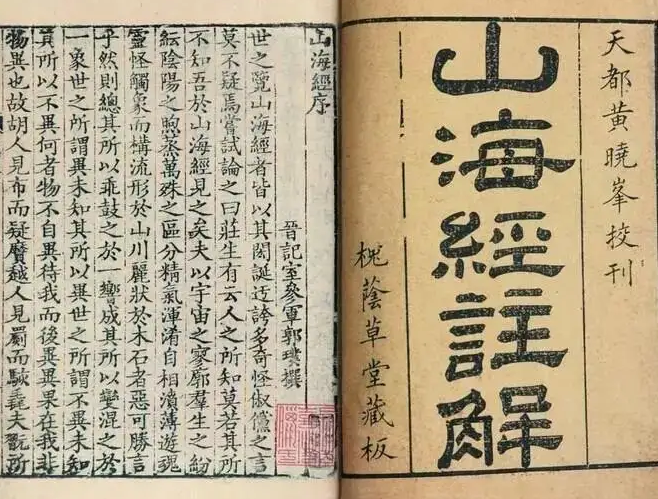 天都黃曉峯挍刊
山海經註解
槐蔭草堂藏板
山海經序
晉記室參軍郭璞撰
世之覽山海經者皆以其閎誕迂誇多奇怪俶儻之言
莫不疑焉嘗試論之曰莊生有云人之所知莫若其所
不知吾於山海經見之矣夫以宇宙之寥廓羣生之紛
紜陰陽之煦蒸萬殊之區分精氣渾淆自相濆薄遊魂
靈怪觸象而構流形於山川麗狀於木石者惡可勝言
乎然則總其所以乖鼓之於一響成其所以變混之於
一象世之所謂異未知其所以異世之所謂不異未知
其所以不異何者物不自異待我而後異異果在我非
物異也故胡人見布而疑黂越人見罽而駭毳夫翫所